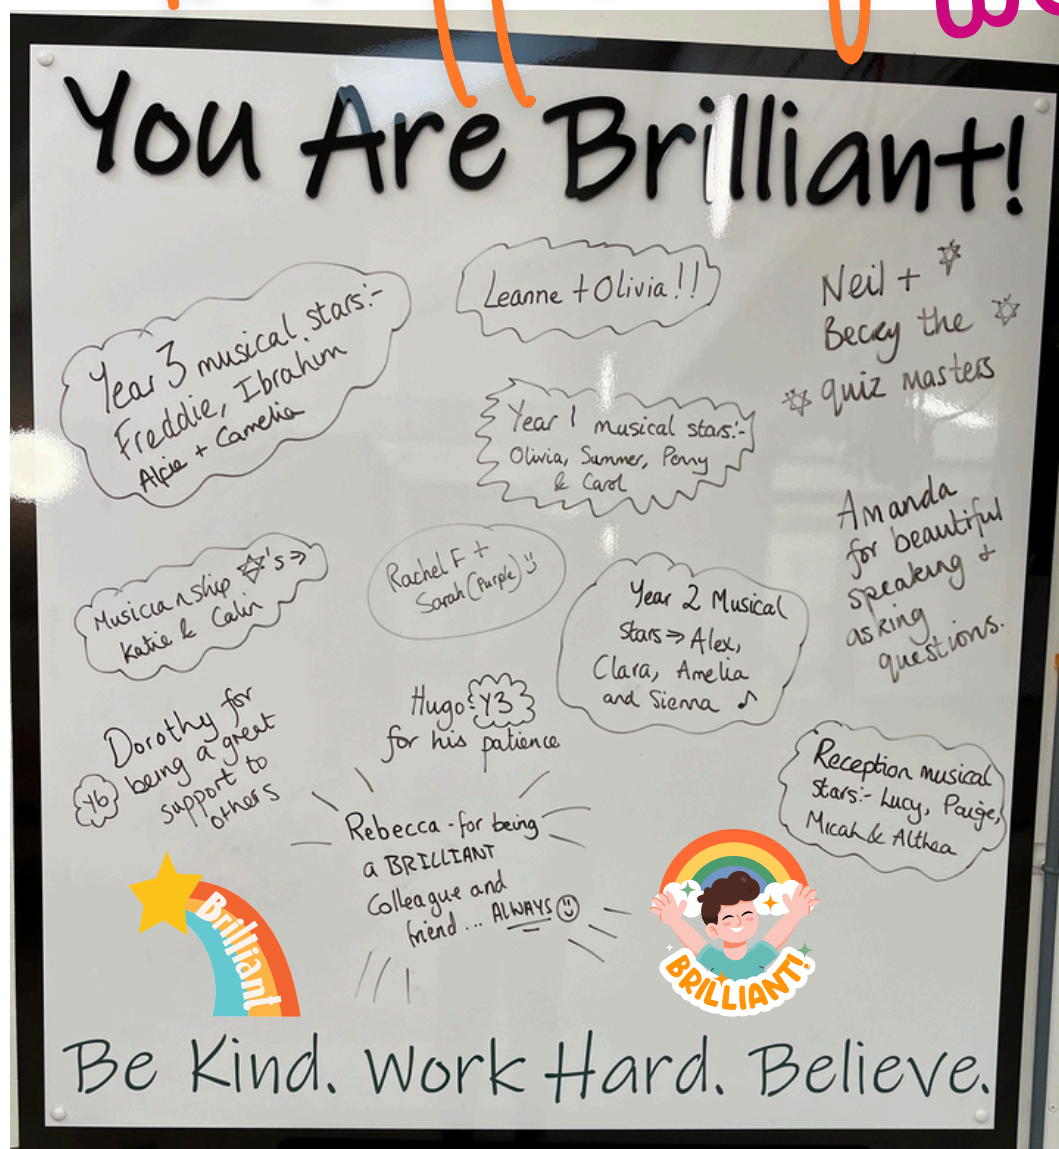 You Are Brilliant!
Year 3 musical stars:-
Freddie, Ibrahim
Alfie + Camelia
Leanne + Olivia!!
Neil +
Becky the
quiz masters
Year 1 musical stars:-
Olivia, Summer, Penny
& Carol
Amanda
for beautiful
speaking +
asking
questions.
Musicianship ☆'s ⇒
Katie & Calin
Rachel F +
Sarah (Purple) ☺
Year 2 Musical
stars ⇒ Alex,
Clara, Amelia
and Sienna ♪
Dorothy for
Y6 being a great
support to
others
Hugo Y3
for his patience
Reception musical
stars:- Lucy, Paige,
Micah & Althea
Rebecca - for being
a BRILLIANT
Colleague and
friend... ALWAYS ☺
Brilliant
BRILLIANT!
Be Kind. Work Hard. Believe.